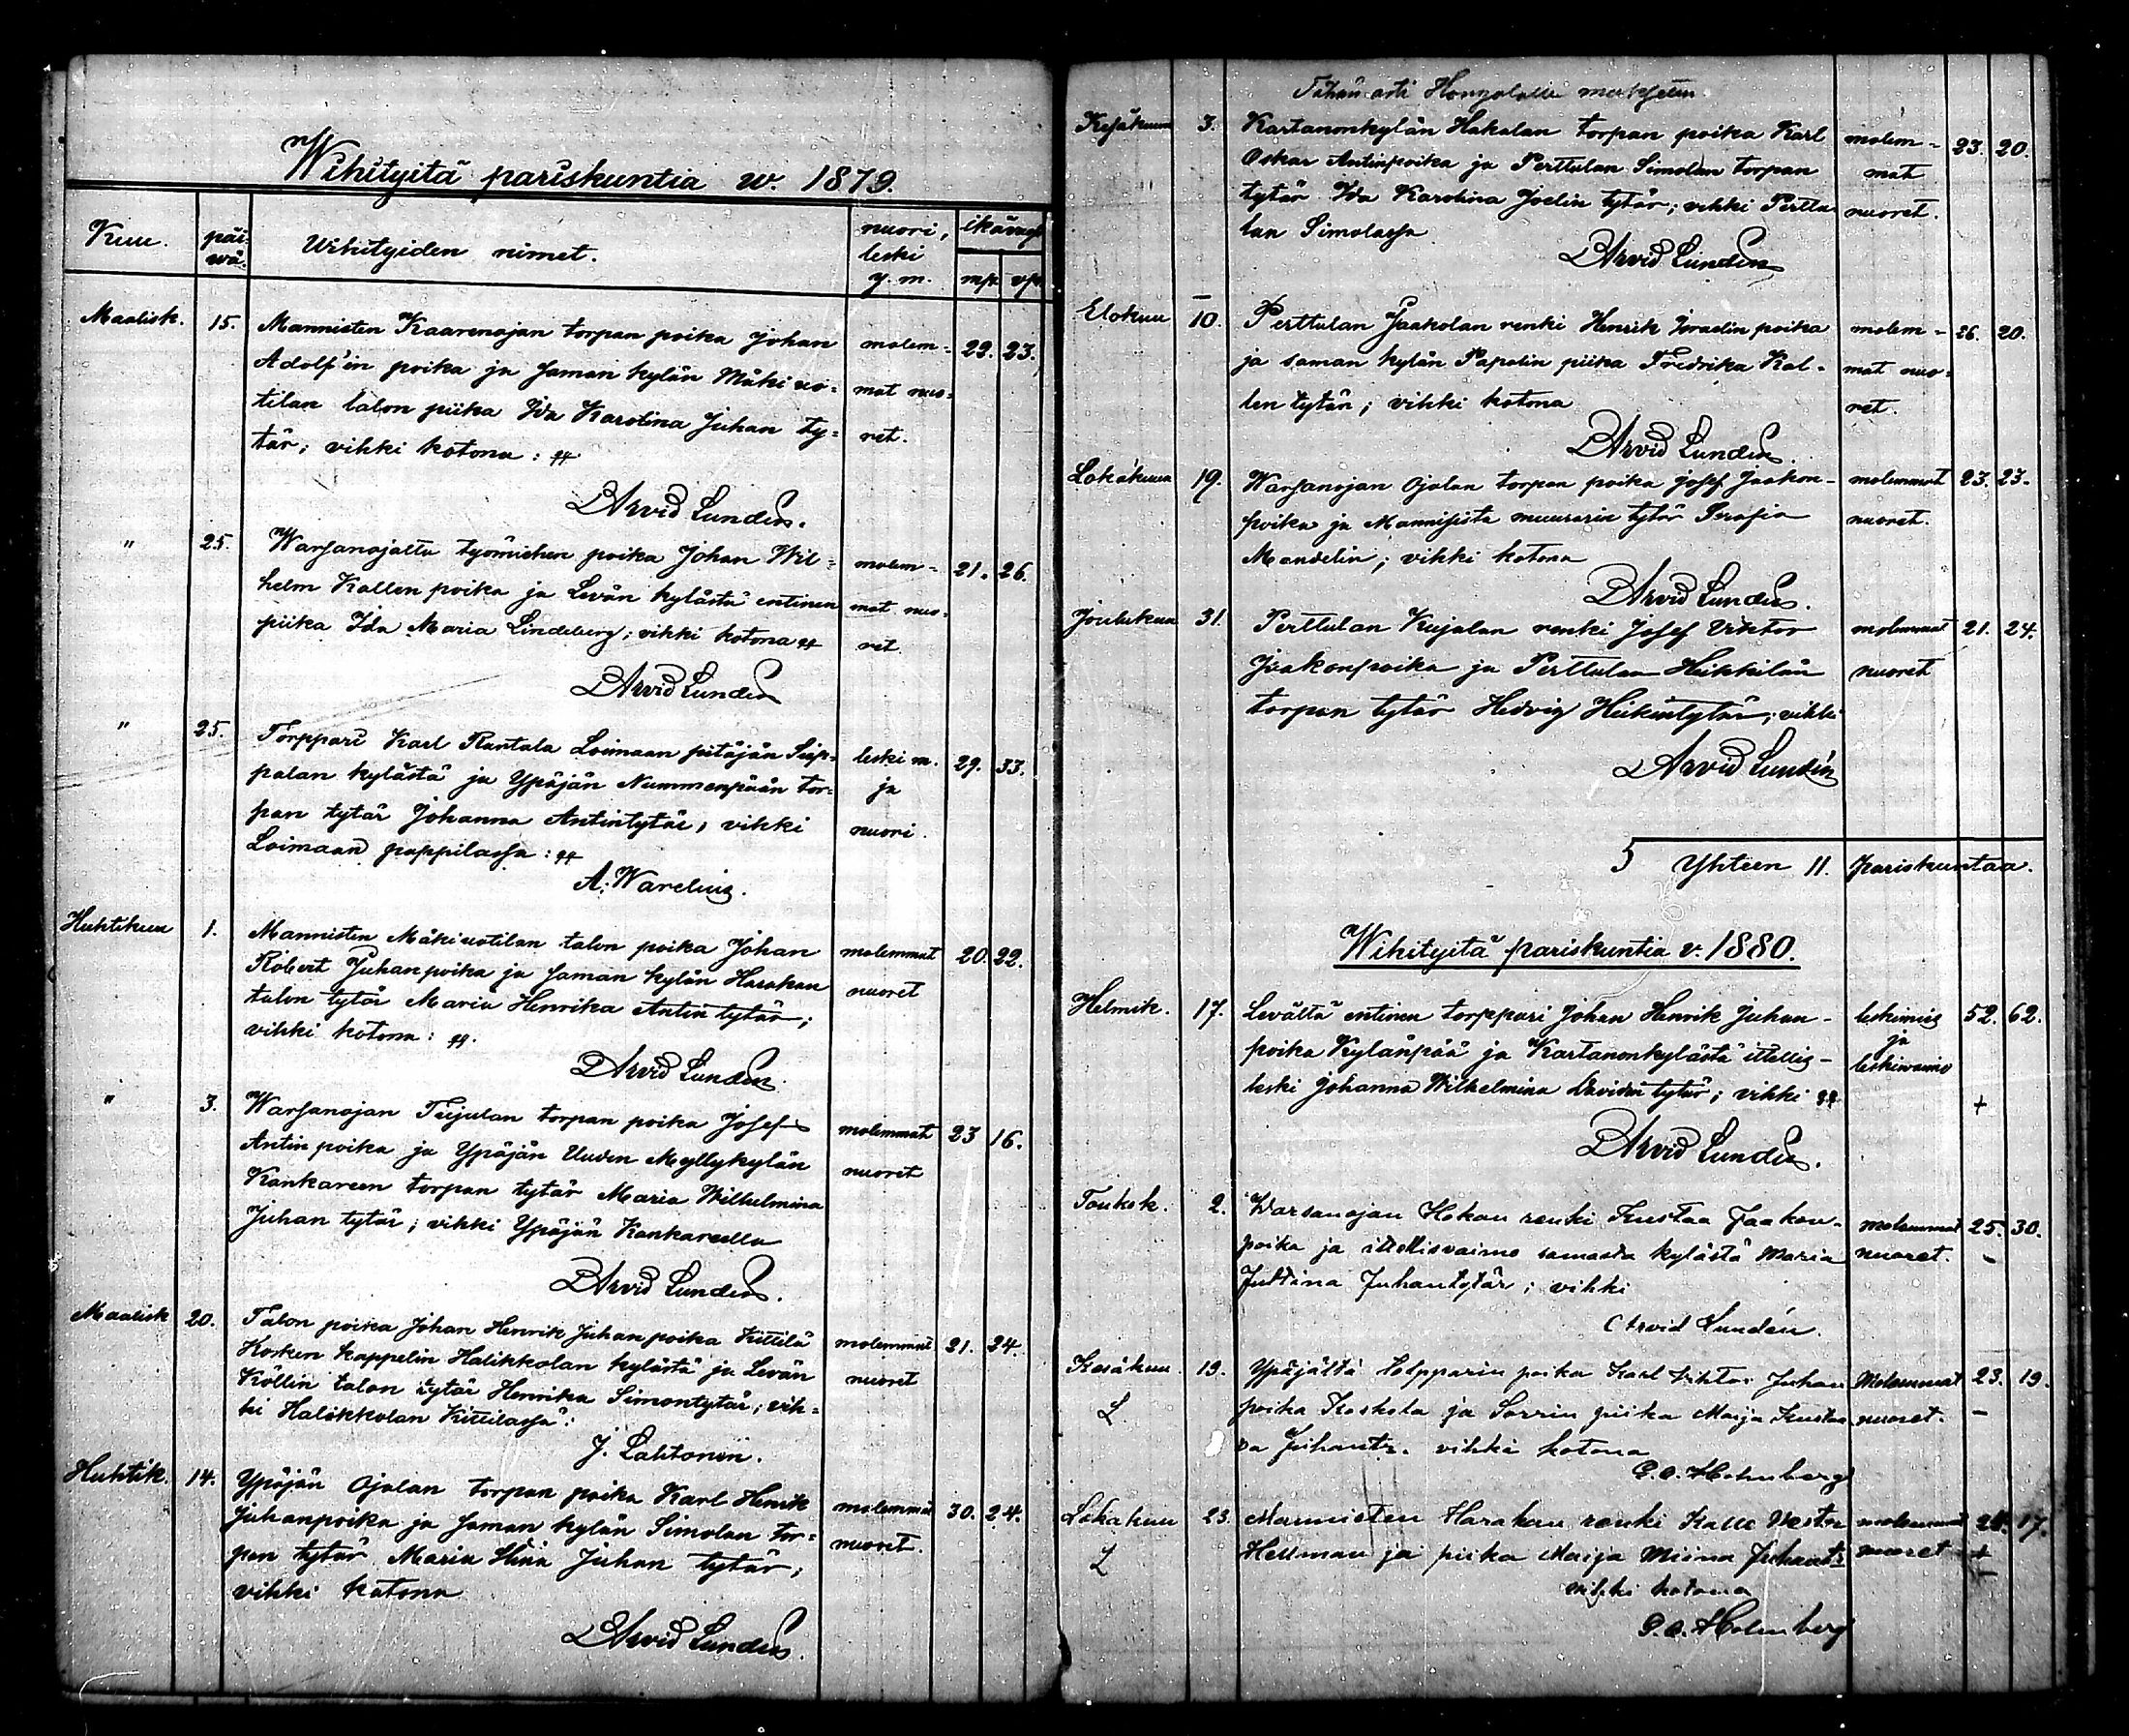 Wihityitä pariskuntia w. 1879.
Kuu. päi-wä. Wihityiden nimet. nuori, leski y. m. ikävuos mp. vp.
Maalisk. 15. Mannisten Kaarenojan torpan poika Johan molem- 22. 23.
Adolf'in poika ja saman kylän Mäkiuo- mat nuo-
tilan talon piika Ida Karolina Juhan ty- ret.
tär; vihki kotona:
Arvid Lundén.
" 25. Warsanojalta työmiehen poika Johan Wil- molem- 21. 26.
helm Kallen poika ja Levän kylästä entinen mat nuo-
piika Ida Maria Lindeberg; vihki kotona ret.
Arvid Lundén
" 25. Torppari Karl Rantala Loimaan pitäjän leski m. 29. 33.
palan kylästä ja Ypäjän Nummenpään tor- ja
pan tytär Johanna Antintytär, vihki nuori.
Loimaan pappilassa:
A. Warelius.
Huhtikuu 1. Mannisten Mäkiuotilan talon poika Johan molemmat 20. 22.
Robert Juhanpoika ja saman kylän Harakan nuoret
talon tytär Maria Henrika Antin tytär;
vihki kotona:
Arvid Lundén.
" 3. Warsanojan torpan poika Josef molemmat 23 16.
Antin poika ja Ypäjän Uuden Myllykylän nuoret
Kankareen torpan tytär Maria Wilhelmina
Juhan tytär; vihki Ypäjän Kankareella
Arvid Lundén.
Maalisk 20. Talon poika Johan Henrik Juhanpoika Kittilä molemmat 21. 24.
Kosken kappelin Halikkolan kylästä ja Levän nuoret
Köllin talon tytär Henrika Simontytär; vih-
ki Halikkolan Kittilassa:
J. Lahtonen.
Huhtik. 14. Ypäjän Ojalan torpan poika Karl Henrik molemmat 30. 24.
Juhanpoika ja saman kylän Simolan tor- nuoret.
pan tytär Maria Stina Juhan tytär;
vihki kotona
Arvid Lundén.
Tähän asti
Kesäkuu 3. Kartanonkylän Hakalan torpan poika Karl molem- 23. 20.
Oskar Antinpoika ja Perttulan Simolan torpan mat
tytär Ida Karolina Joelin tytär; vihki Perttu nuoret.
lan Simolassa
Arvid Lundén
Elokuu 10. Perttulan Jaakolan renki Henrik Israelin poika molem- 26. 20.
ja saman kylän Papalin piika Fredrika Kal- mat nuo-
len tytär; vihki kotona ret.
Arvid Lundén.
Lokakuu 19. Warsanojan Ojalan torpan poika Josef Jaakon- molemmat 23. 23.
poika ja muurarin tytär Serafia nuoret.
Mandelin; vihki kotona
Arvid Lundén.
Joulukuu 31. Perttulan Kujalan renki Josef Viktor molemmat 21. 24.
Jaakonpoika ja Perttulan Heikkilän nuoret
torpan tytär Hedvig Heikintytär; vihki
Arvid Lundén
Yhteen 11. pariskuntaa.
Wihityitä pariskuntia v. 1880.
Helmik. 17. Levältä entinen torppari Johan Henrik Juhan- leskimies 52. 62.
poika Kylänpää ja Kartanonkylästä itellis- ja leskivaimo
leski Johanna Wilhelmina Davidin tytär; vihki +
Arvid Lundén.
Toukok. 2. Warsanojan Hakan renki Kustaa Jaakon- molemmat 25. 30.
poika ja itellisvaimo samasta kylästä Maria nuoret. -
Justina Juhantytär; vihki
Arvid Lundén.
Kesäkuu 19. Ypäjältä poika Karl Viktor Juhan Molemmat 23. 19.
L poika Koskela ja Sorrin piika Maija Kusta nuoret. -
va Juhantr. vihki kotona
G. A. Holmberg
Lokakuu 23. Mannisten Harakan renki Kalle molemmat 24. 17.
L Hellman ja piika Maija Miina Juhantr nuoret +
vihki kotona
G. A. Holmberg